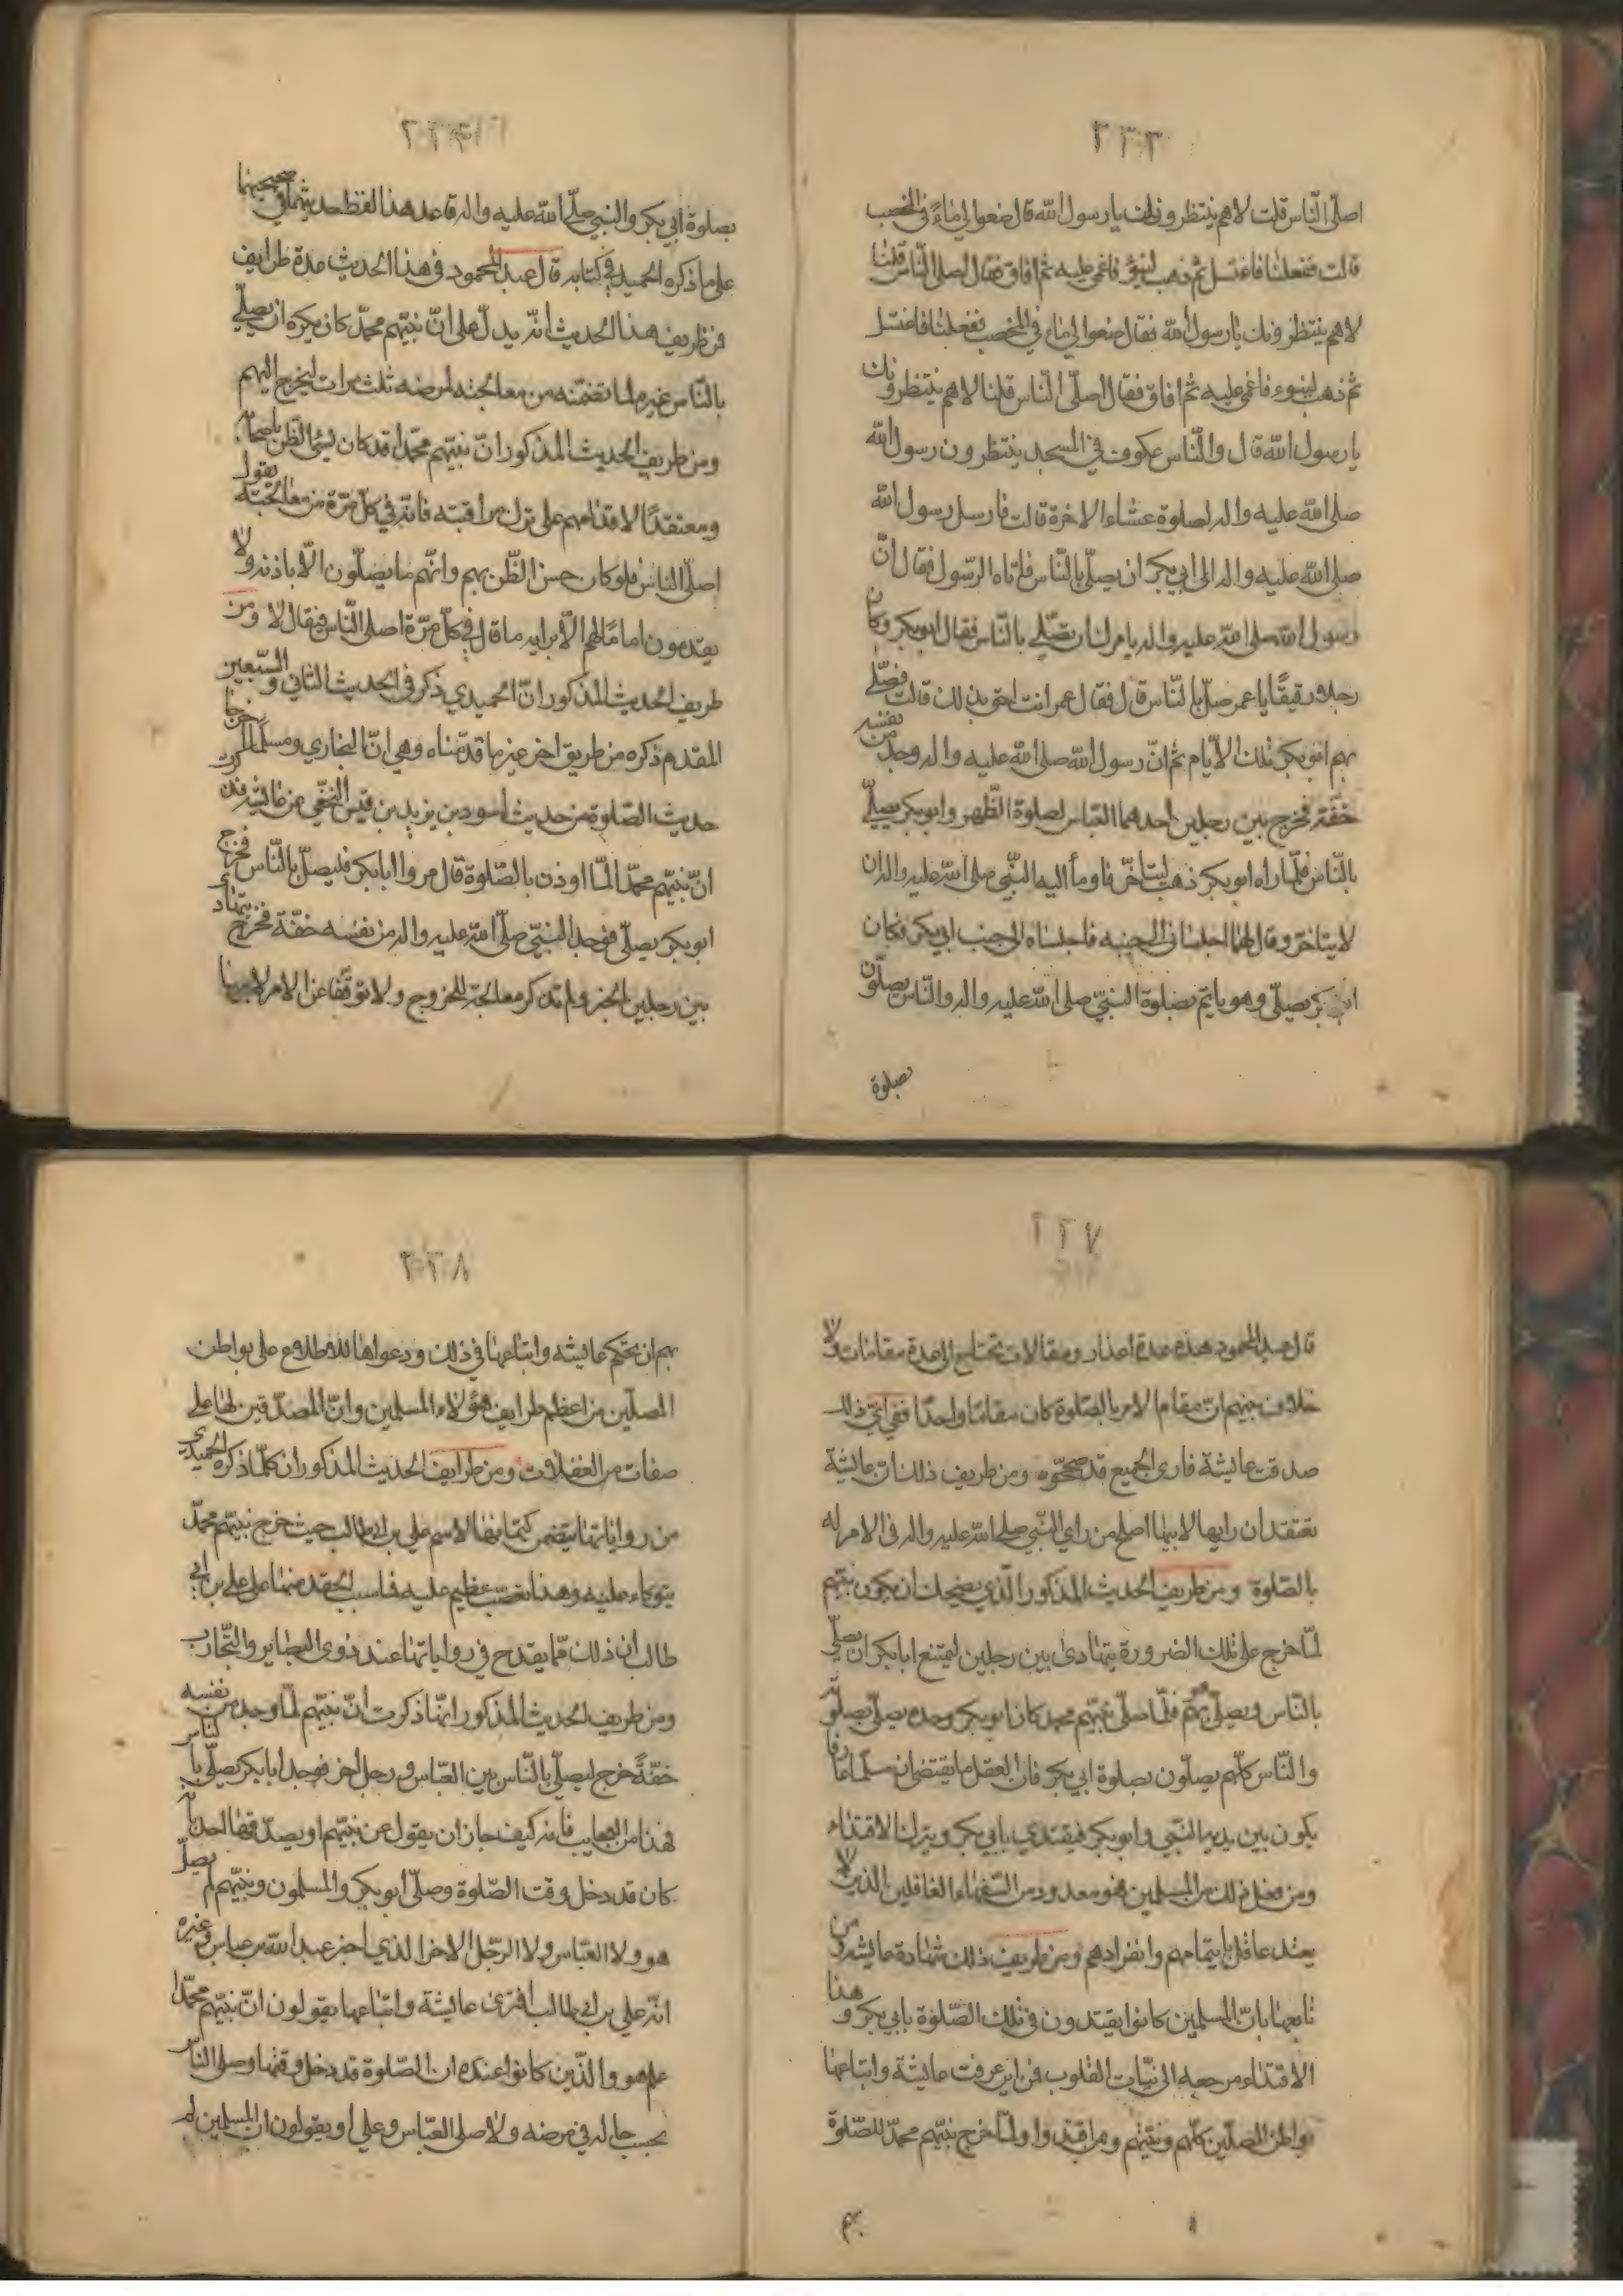 ٢٢٣
اصلّى النّاس قلت لا هم ينتظرونك يا رسول الله قال ضعوا لي ماءً في المخضب
قالت ففعلنا فاغتسل ثم ذهب لينوء فاغمي عليه ثم افاق فقال اصلى النّاس قلنا
لا هم ينتظرونك يا رسول الله فقال ضعوا لي ماء في المخضب ففعلنا فاغتسل
ثم ذهب لينوء فاغمي عليه ثم افاق فقال اصلّى النّاس قلنا لا هم ينتظرونك
يا رسول الله قال والنّاس عكوف في المسجد ينتظرون رسول الله
صلى الله عليه واله لصلوة عشاء الاخرة قالت فارسل رسول الله
صلى الله عليه واله الى ابي بكر ان يصلّي بالنّاس فاتاه الرّسول فقال انّ
رسول الله صلى الله عليه واله يامرك ان تصّلي بالنّاس فقال ابو بكر وكان
رجلا رقيقًا يا عمر صلّ بالنّاس قال فقال عمر انت احق بذلك قالت فصلّى
بهم ابو بكر تلك الايّام ثم انّ رسول الله صلى الله عليه واله وجد من نفسه
خفّة فخرج بين رجلين احدهما العبّاس لصلوة الظّهر وابو بكر يصلّي
بالنّاس فلمّا راه ابو بكر ذهب ليتاخّر فاومأ اليه النّبي صلى الله عليه واله ان
لا يتاخر وقال لهما اجلساني الى جنبه فاجلساه الى جنب ابي بكر فكان
ابو بكر يصلّي وهو ياتمّ بصلوة النّبيّ صلى الله عليه واله والنّاس يصلّون
بصلوة
٢٢٤
بصلوة ابي بكر والنبي صلّى الله عليه واله قاعد هذا لفظ حديثهما في صحيحيهما
على ما ذكره الحميدي في كتابه قال عبد المحمود في هذا الحديث عدة طرايف
فن ظريف هذا الحديث انّه يدلّ على انّ نبيّهم محمدّ كان يكره ان يصلّي
بالنّاس غيره لما تضمّنه من معالجته لمرضه ثلث مرات ليخرج اليهم
ومن طريف الحديث المذكور انّ نبيّهم محمّدا قد كان يسيء الظّن باصحابه
ومعتقدًا لاقدامهم على ترك مراقبته فانّه في كلّ مرّة من معالجته يقول
اصلّى الناس فلو كان حسن الظّن بهم وانّهم ما يصلّون الّا باذنه ولا
يقدمون امامًا لهم الّا برايه ما قال في كلّ مرّة اصلى النّاس فيقال لا ومن
طريف الحديث المذكور انّ الحميدي ذكر في الحديث الثاني والسّبعين
المقدم ذكره من طريق اخر غير ما قدّمناه وهي انّ البخاري ومسلما اخرجا
حديث الصّلوة من حديث اسود بن يزيد بن قيس النخعي عن عايشة فذكرت
انّ نبيّهم محمدّ لمّا اوذن بالصّلوة قال مروا ابا بكر فليصلّ بالنّاس فخرج
ابو بكر يصلّي فوجد النّبيّ صلّى الله عليه واله من نفسه خفّة فخرج يتهادى
بين رجلين الخبر ولم تذكر معالجة للخروج ولا توقّفا عن الامر لابيها
٢٢٧
قال عبد المحمود هذه عدة اعذار ومقالات تحتاج الى عدة مقامات ولا
خلاف بينهم انّ مقام الامر بالصّلوة كان مقامًا واحدًا ففي ايّ ذلك
صدقت عايشة فارى الجميع قد صححّوه ومن طريف ذلك ان عايشة
تعتقد ان رايها لابيها اصلح من راي النّبي صلى الله عليه واله في الامر له
بالصّلوة ومن طريف الحديث المذكور الّذي يضحك ان يكون نبيّهم
لمّا خرج على تلك الضرورة يتهادى بين رجلين ليمنع ابا بكر ان يصلّي
بالنّاس ويصلّي هو بهم فلمّا صلّى نبيّهم محمد كان ابو بكر وحده يصلّي بصلوته
والنّاس كلّهم يصلّون بصلوة ابي بكر فان العقل ما يقتضي ان مسلما عارفا
يكون بين يديه النبّي وابو بكر فيقتدي بابي بكر ويترك الاقتداء
ومن فعل ذلك من المسلمين فهو معدود من السّفهاء الغافلين الذين لا
يعتد عاقل بايتمامهم وانفرادهم ومن طريف ذلك شهادة عايشة ومن
تابعها بانّ المسلمين كانوا يقتدون في تلك الصّلوة بابي بكر وهذا
الاقتداء مرجعه الى نيّات القلوب فن اين عرفت عايشة واتباعها
بواطن المصلّين كلّهم ونيّتهم ومن اقتدوا ولمّا خرج نبيّهم محمدّ للصّلوة
بهم
٢٢٨
بهم ان تحكم عايشه واتباعها في ذلك ودعواها للاطلاع على بواطن
المصلّين من اعظم طرايف هؤلاء المسلمين وانّ المصدّقين لها على
صفات من الغفلات ومن طرايف الحديث المذكور ان كلّما ذكره الحميدي
من رواياتها يتضمن كتمانها لاسم علي بن ابي طالب حيث خرج نبيّهم محمدّ
يتوكاء عليه وهذا تعصّب عظيم عليه فاسب الحقد منها على علي بن ابي
طالب ان ذلك ممّا يقدح في رواياتها عند ذوى البصاير والتّجارب
ومن طريف الحديث المذكور انها ذكرت انّ نبيّهم لمّا وجد من نفسه
خفّةً خرج ليصلّي بالنّاس بين العبّاس ورجل اخر فوجد ابا بكر يصلّي بالنّاس
فهذا من العجايب فانه كيف جاز ان يقول عن نبيّهم او يصدّقها احد بانّه
كان قد دخل وقت الصّلوة وصلّى ابو بكر والمسلمون ونبيّهم لم يصلّ
هو ولا العبّاس ولا الرّجل الاخر الذي اخبر عبد الله بن عباس وغيره
انّه علي بن ابي طالب افترى عايشة واتباعها يقولون انّ نبيّهم محمّدا
علم هو والّذين كانوا عنده ان الصّلوة قد دخل وقتها وصلى النّاس
بحسب حاله في مرضه ولا صلى العبّاس وعلي او يقولون ان المسلمين لم